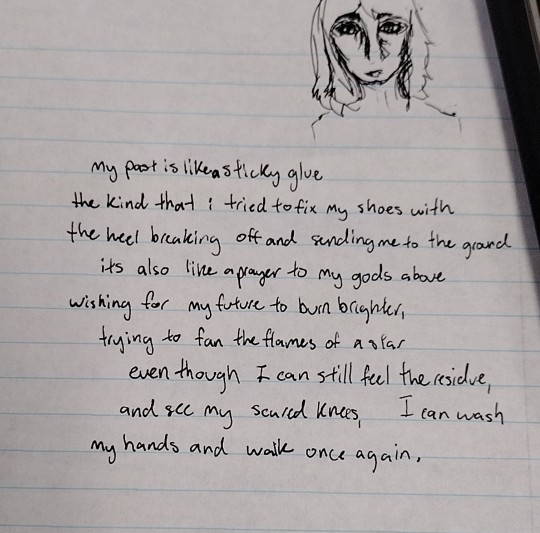 My past is like a sticky glue
the kind that i tried to fix my shoes with
the heel breaking off and sending me to the ground
its also like a prayer to my gods above
wishing for my future to burn brighter,
trying to fan the flames of a star
even though I can still feel the residue,
and see my scared knees, I can wash
my hands and walk once again.